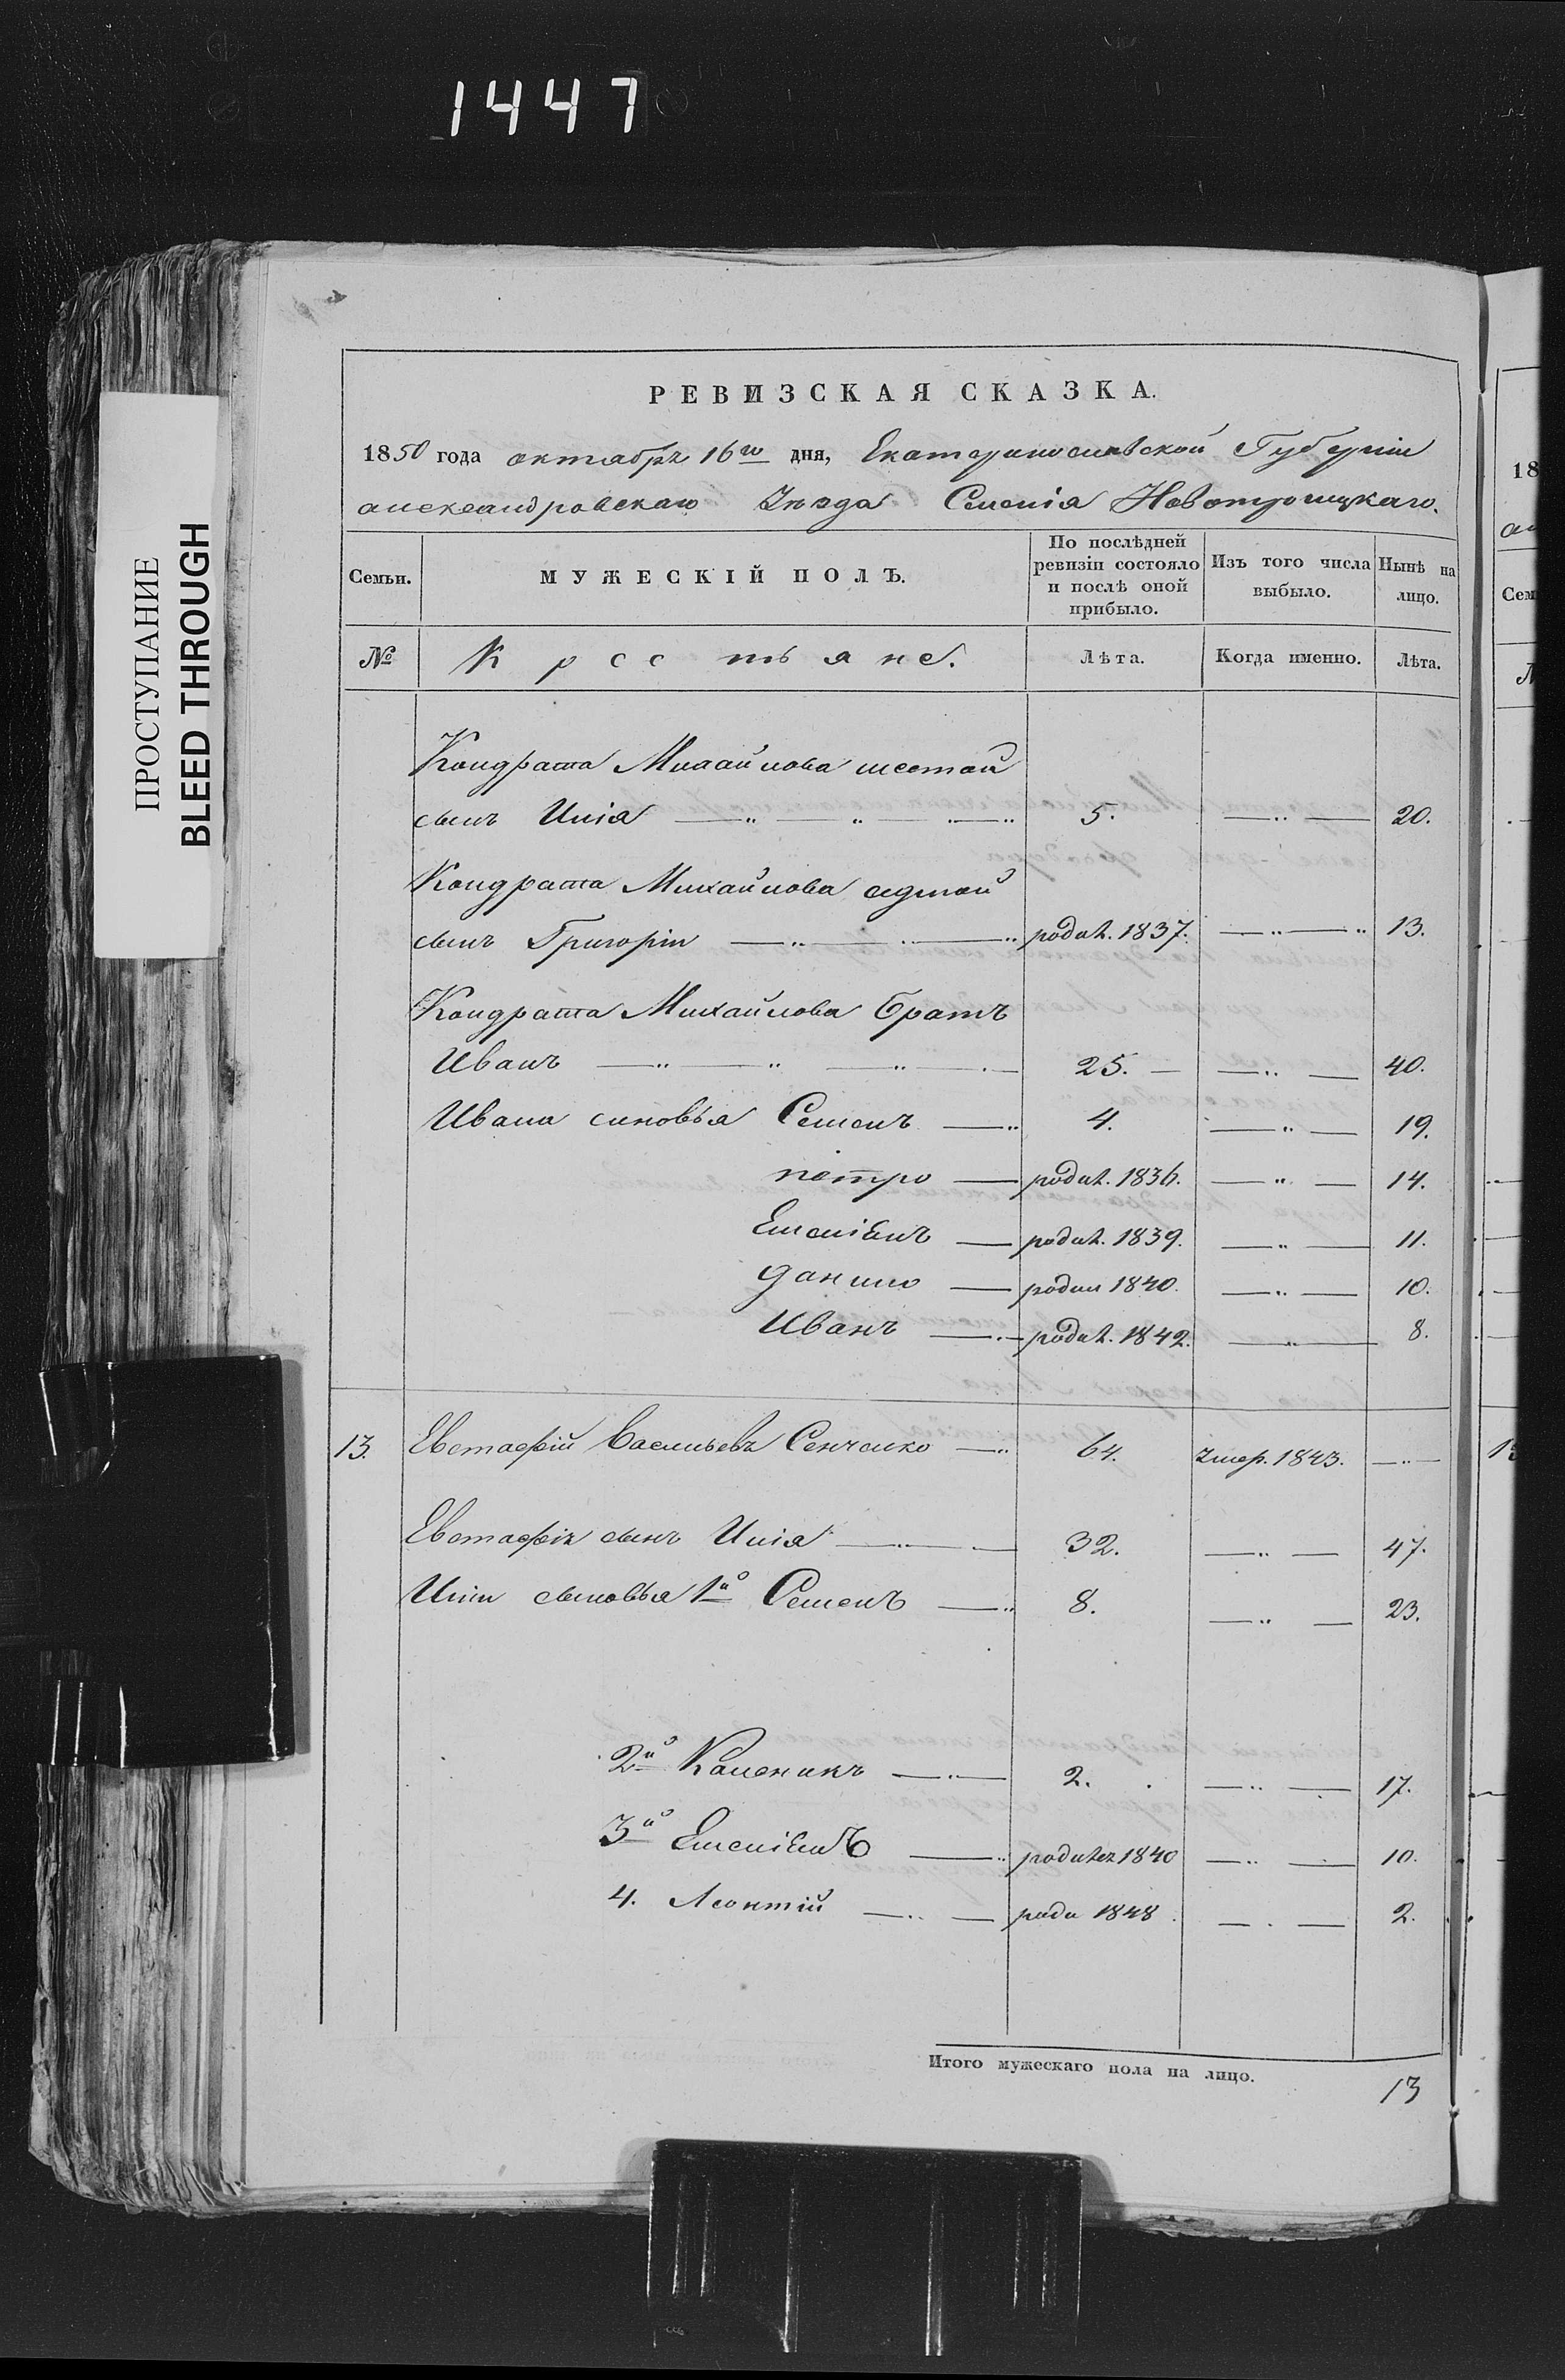 1447
ПРОСТУПАНИЕ
BLEED THROUGH
РЕВИЗСКАЯ СКАЗКА.
1850 года октября 16го дня, Екатеринославской Губерніи
александровскаго Уѣзда Селенія Новотроицкаго.
Семьи. МУЖЕСКІЙ ПОЛЪ. По послѣдней ревизіи состояло и послѣ оной прибыло. Изъ того числа выбыло. Нынѣ на лицо.
№ Крестьяне. Лѣта. Когда именно. Лѣта.
Кондрата Михайлова шестой
сынъ Илія 5. 20.
Кондрата Михайлова седмой
сынъ Григорій родил. 1837. 13.
Кондрата Михайлова братъ
Иванъ 25. 40.
Ивана синовья Семенъ 4. 19.
петро родил. 1836. 14.
Емеліянъ родил. 1839. 11.
данило родил 1840. 10.
Иванъ родил. 1842. 8.
13. Евстафій Васильевъ Сенченко 64. умер. 1843.
Евстафія сынъ Илія 32. 47.
Иліи сыновья 1й Семенъ 8. 23.
2й Каленикъ 2. 17.
3й Емеліянъ 1840 10.
4. Леонтій роди 1848. 2.
Итого мужескаго пола на лицо.
13
18
Сем